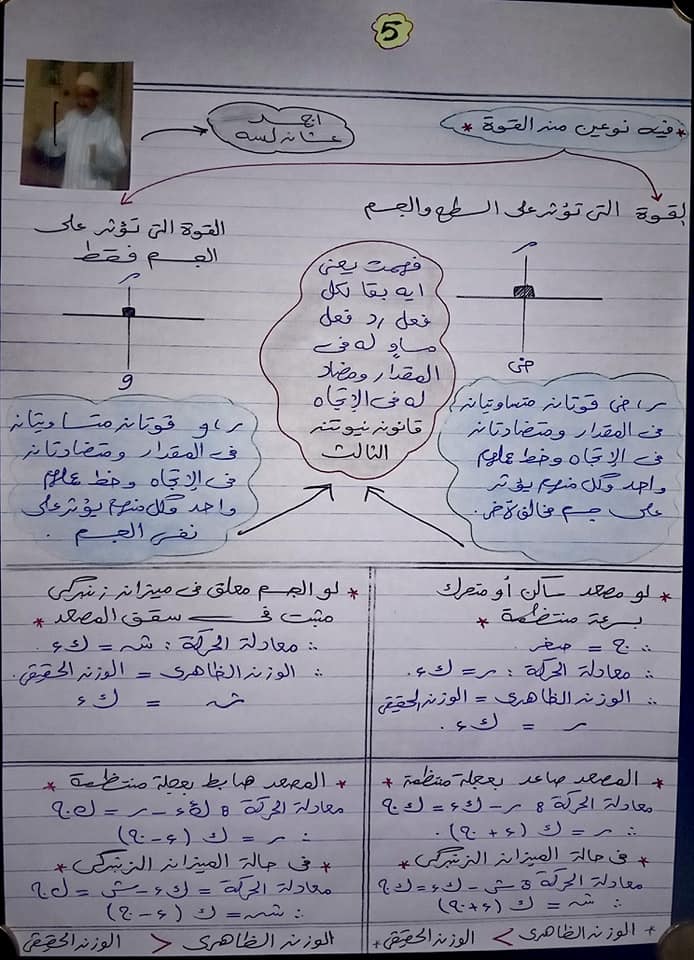 5
* فيه نوعين من القوة *
اجمد
عشان لسه
القوة التى تؤثر على السطح والجسم
القوة التى تؤثر على
الجسم فقط
ر
ض
ر
و
فهمت يعنى
ايه بقا لكل
فعل رد فعل
مساوٍ له فى
المقدار ومضاد
له فى الإتجاه
قانون نيوتن
الثالث
ر، ض قوتان متساويتان
فى المقدار ومتضادتان
فى الإتجاه وخط عملهم
واحد وكل منهم يؤثر
على جسم مخالف لآخر.
ر، و قوتان متساويتان
فى المقدار ومتضادتان
فى الإتجاه وخط عملهم
واحد وكل منهم يؤثر على
نفس الجسم.
* لو مصعد ساكن أو متحرك
بسرعة منتظمة *
∴ ج = صفر
∴ معادلة الحركة : ر = ك ء.
∴ الوزن الظاهرى = الوزن الحقيقى
ر = ك ء.
* لو الجسم معلق فى ميزان زنبركى
مثبت فى سقف المصعد *
∴ معادلة الحركة : شـ = ك ء.
∴ الوزن الظاهرى = الوزن الحقيقى.
شـ = ك ء
* المصعد صاعد بعجلة منتظمة *
معادلة الحركة : ر - ك ء = ك ج
∴ ر = ك (ء + ج).
* فى حالة الميزان الزنبركى *
معادلة الحركة : ش - ك ء = ك ج
∴ شـ = ك (ء + ج)
* الوزن الظاهرى > الوزن الحقيقى *
* المصعد هابط بعجلة منتظمة *
معادلة الحركة : ك ء - ر = ك ج
∴ ر = ك (ء - ج)
* فى حالة الميزان الزنبركى *
معادلة الحركة = ك ء - ش = ك ج
∴ شـ = ك (ء - ج)
الوزن الظاهرى < الوزن الحقيقى